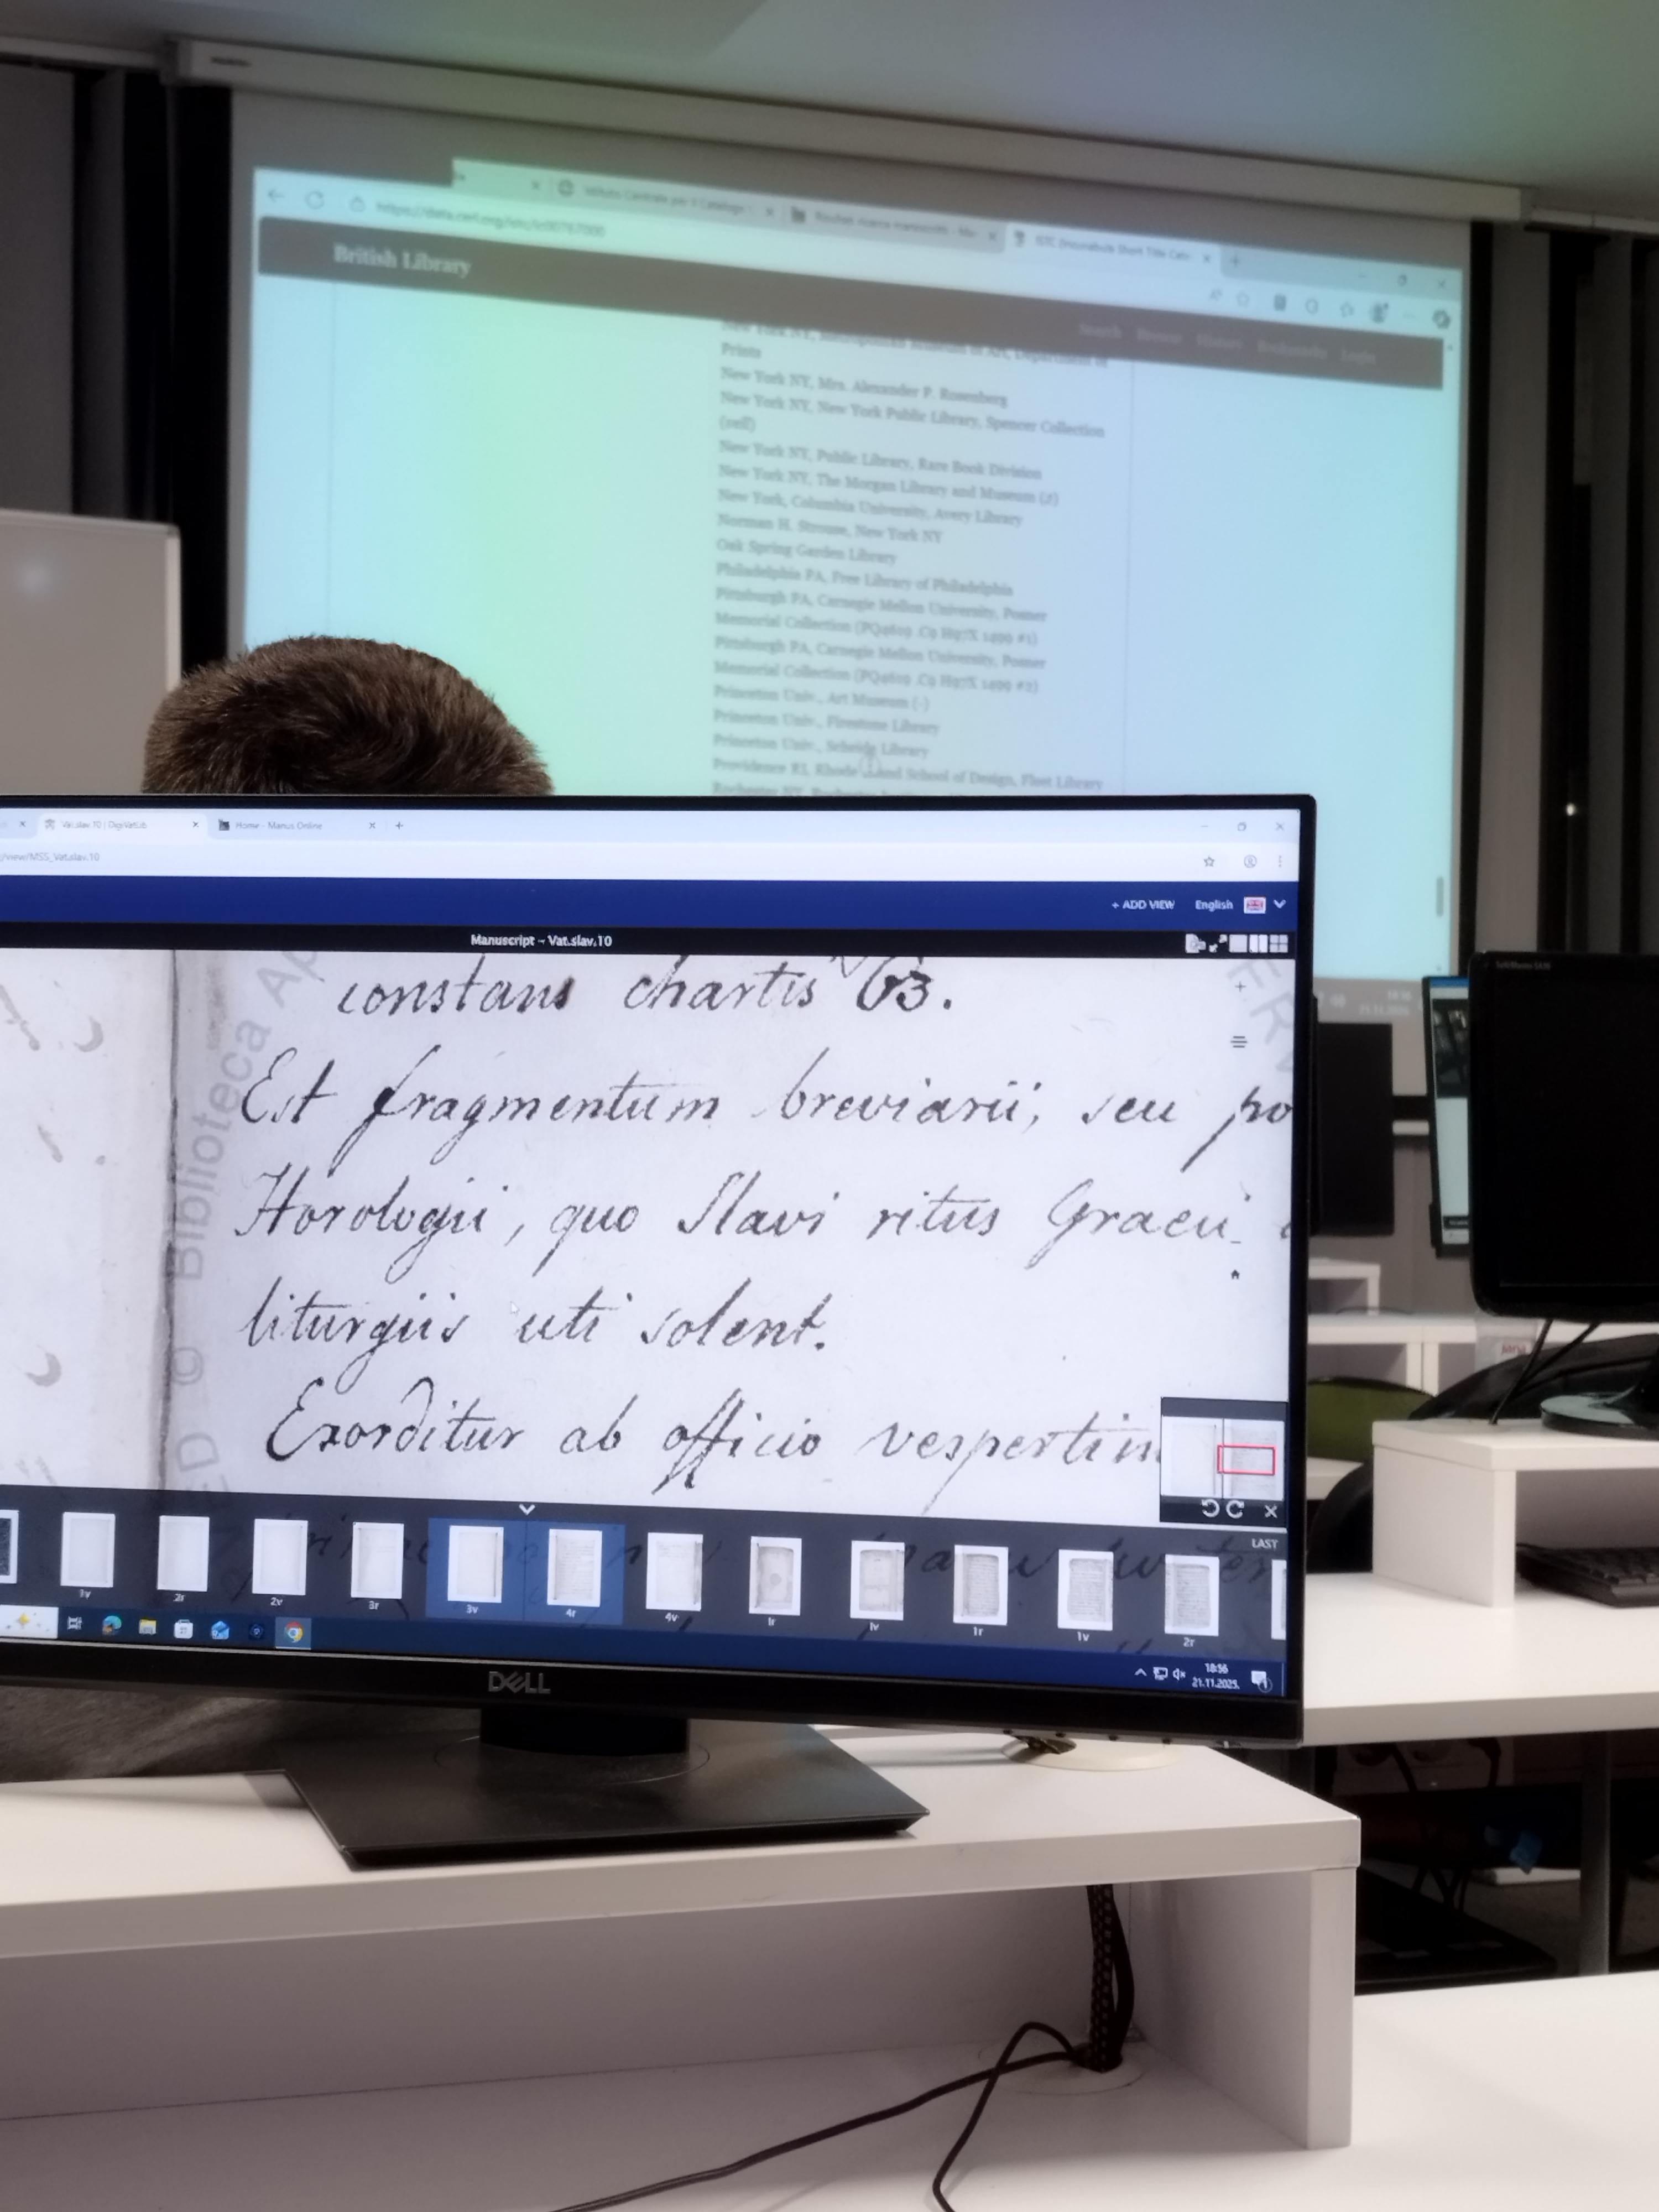 https://data.cerl.org/istc/ic00767000
British Library
Search Browse History Bookmarks Login
New York NY, Metropolitan Museum of Art, Department of
Prints
New York NY, Mrs. Alexander P. Rosenberg
New York NY, New York Public Library, Spencer Collection
(vell)
New York NY, Public Library, Rare Book Division
New York NY, The Morgan Library and Museum (2)
New York, Columbia University, Avery Library
Norman H. Strouse, New York NY
Oak Spring Garden Library
Philadelphia PA, Free Library of Philadelphia
Pittsburgh PA, Carnegie Mellon University, Posner
Memorial Collection (PQ4619 .C9 H97X 1499 #1)
Pittsburgh PA, Carnegie Mellon University, Posner
Memorial Collection (PQ4619 .C9 H97X 1499 #2)
Princeton Univ., Art Museum (-)
Princeton Univ., Firestone Library
Princeton Univ., Scheide Library
Providence RI, Rhode Island School of Design, Fleet Library
Vat.slav.10 | DigiVatLib
Home - Manus Online
/view/MSS_Vat.slav.10
+ ADD VIEW English
Manuscript - Vat.slav.10
constans chartis 63.
Est fragmentum breviarii, seu po
Horologii, quo Slavi ritus Graeci
liturgiis uti solent.
Exorditur ab officio vespertin
© Biblioteca Ap
LAST
1v 2r 2v 3r 3v 4r 4v Ir Iv 1r 1v 2r
18:56
21.11.2025.
DELL